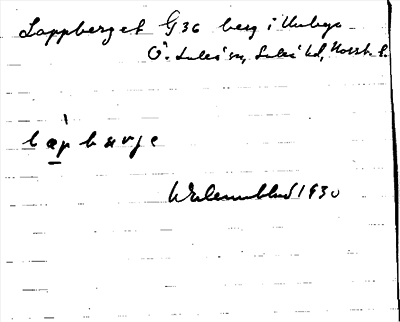 Lappberget G36 berg i Unbyn
Ö. Luleå sn, Luleå td, Norrb. l.
læpbærje
Wilenblad 1930